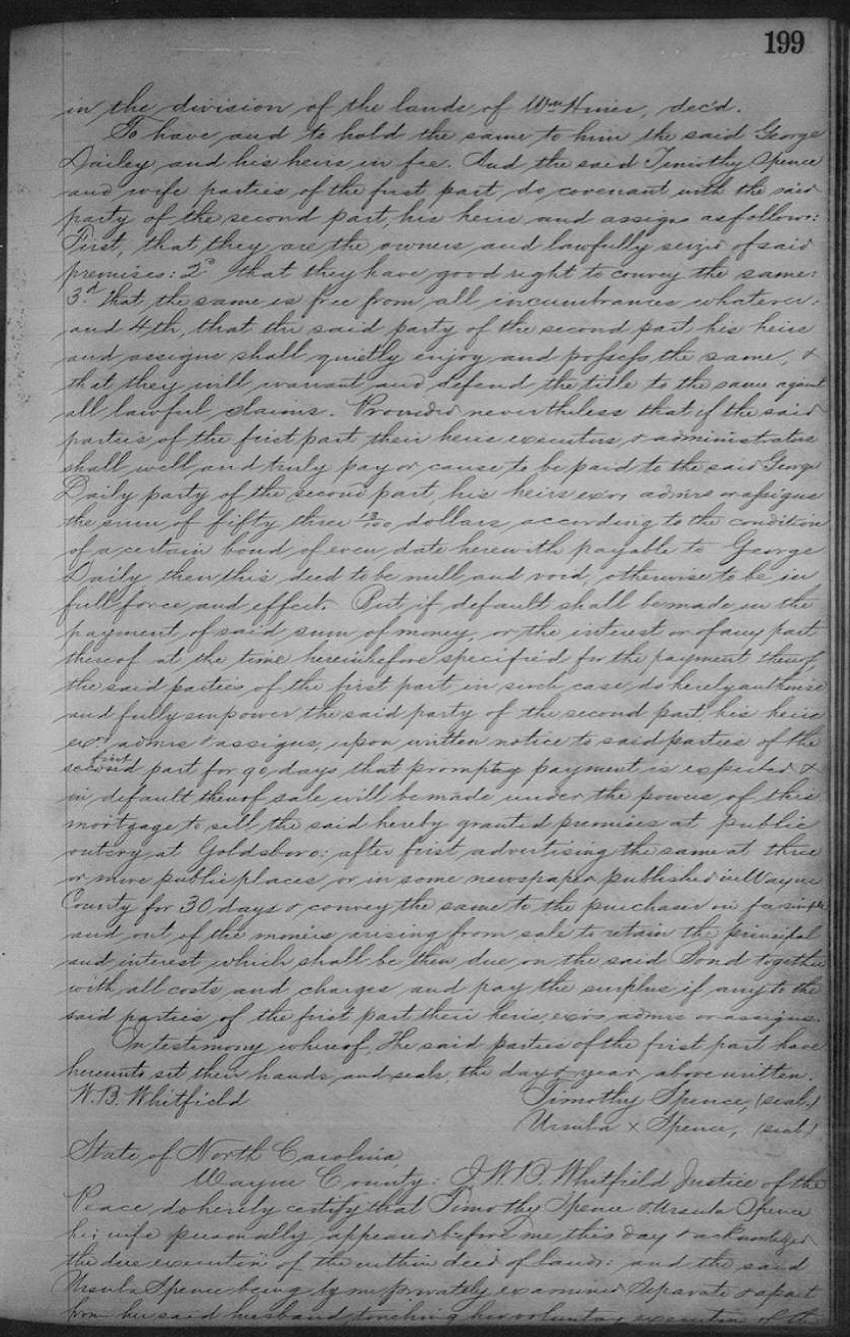 199
in the division of the lands of Wm Hines, dec'd.
To have and to hold the same to him the said George
Dailey and his heirs in fee. And the said Timothy Spence
and wife parties of the first part, do covenant with the said
party of the second part, his heirs and assigns as follows:
First, that they are the owners and lawfully seized of said
premises: 2d that they have good right to convey the same:
3d that the same is free from all incumbrances whatever:
and 4th, that the said party of the second part his heirs
and assigns shall quietly enjoy and possess the same, &
that they will warrant and defend the title to the same against
all lawful claims. Provided nevertheless that if the said
parties of the first part their heirs executors & administrators
shall well and truly pay or cause to be paid to the said George
Daily party of the second part, his heirs exors admrs or assigns
the sum of fifty three 13/100 dollars, according to the condition
of a certain bond of even date herewith payable to George
Daily, then this deed to be null and void, otherwise to be in
full force and effect. But if default shall be made in the
payment of said sum of money, or the interest or of any part
thereof at the time hereinbefore specified for the payment thereof
the said parties of the first part, in such case, do hereby authorise
and fully empower the said party of the second part, his heirs
exors admrs & assigns, upon written notice to said parties of the
first
second part for 90 days that prompt payment is expected &
in default thereof sale will be made under the powers of this
mortgage to sell the said hereby granted premises at public
outcry at Goldsboro: after first advertising the same at three
or more public places or in some newspaper published in Wayne
County for 30 days & convey the same to the purchaser in fee simple
and out of the monies arising from sale to retain the principal
and interest which shall be then due on the said Bond together
with all costs and charges and pay the surplus if any to the
said parties of the first part their heirs, exors admrs or assigns.
In testimony whereof, The said parties of the first part have
hereunto set their hands and seals, the day & year above written.
W.B. Whitfield Timothy Spence, (seal)
Ursula x Spence, (seal)
State of North Carolina,
Wayne County: I W.B. Whitfield Justice of the
Peace, do hereby certify that Timothy Spence & Ursula Spence
his wife personally appeared before me this day & acknowledged
the due execution of the within deed of lands: and the said
Ursula Spence being by me privately examined separate & apart
from her said husband touching her voluntary execution of the